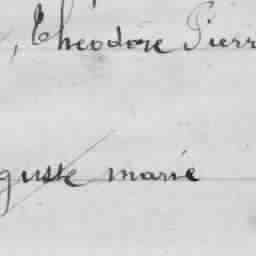 , Théodore Pierr
guste marie